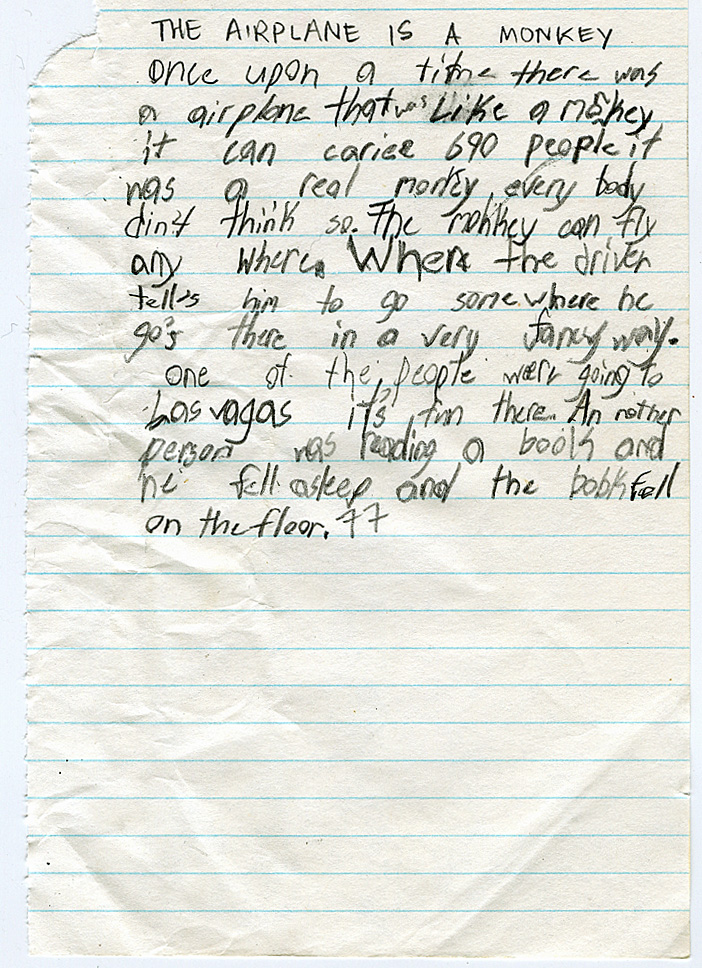 THE AIRPLANE IS A MONKEY
once upon a time there was
a airplane that was Like a monkey
it can cariee 690 people it
was a real monky every body
din't think so. The monkey can fly
any where. When the driver
tell's him to go some where he
go's there in a very fancy way.
one of the people werr going to
Las vagas it's fun there. An nother
person was reading a book and
he fell asleep and the book fell
on the floor. 77